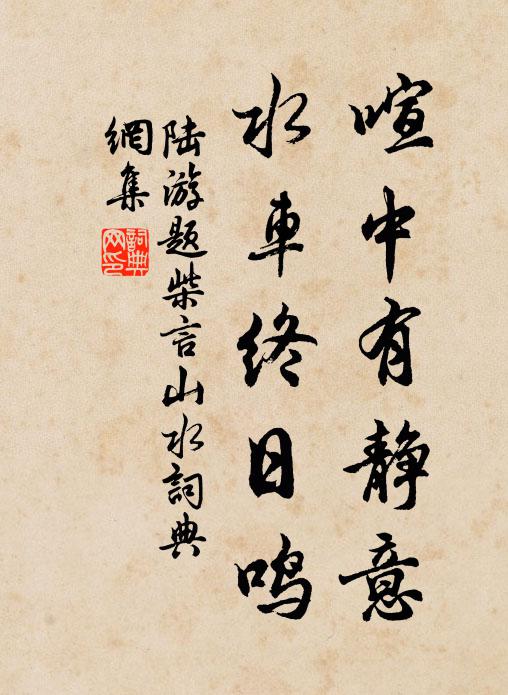 喧中有静意
水車終日鸣
陆游题柴言山水詞典
網集
詞典
网印